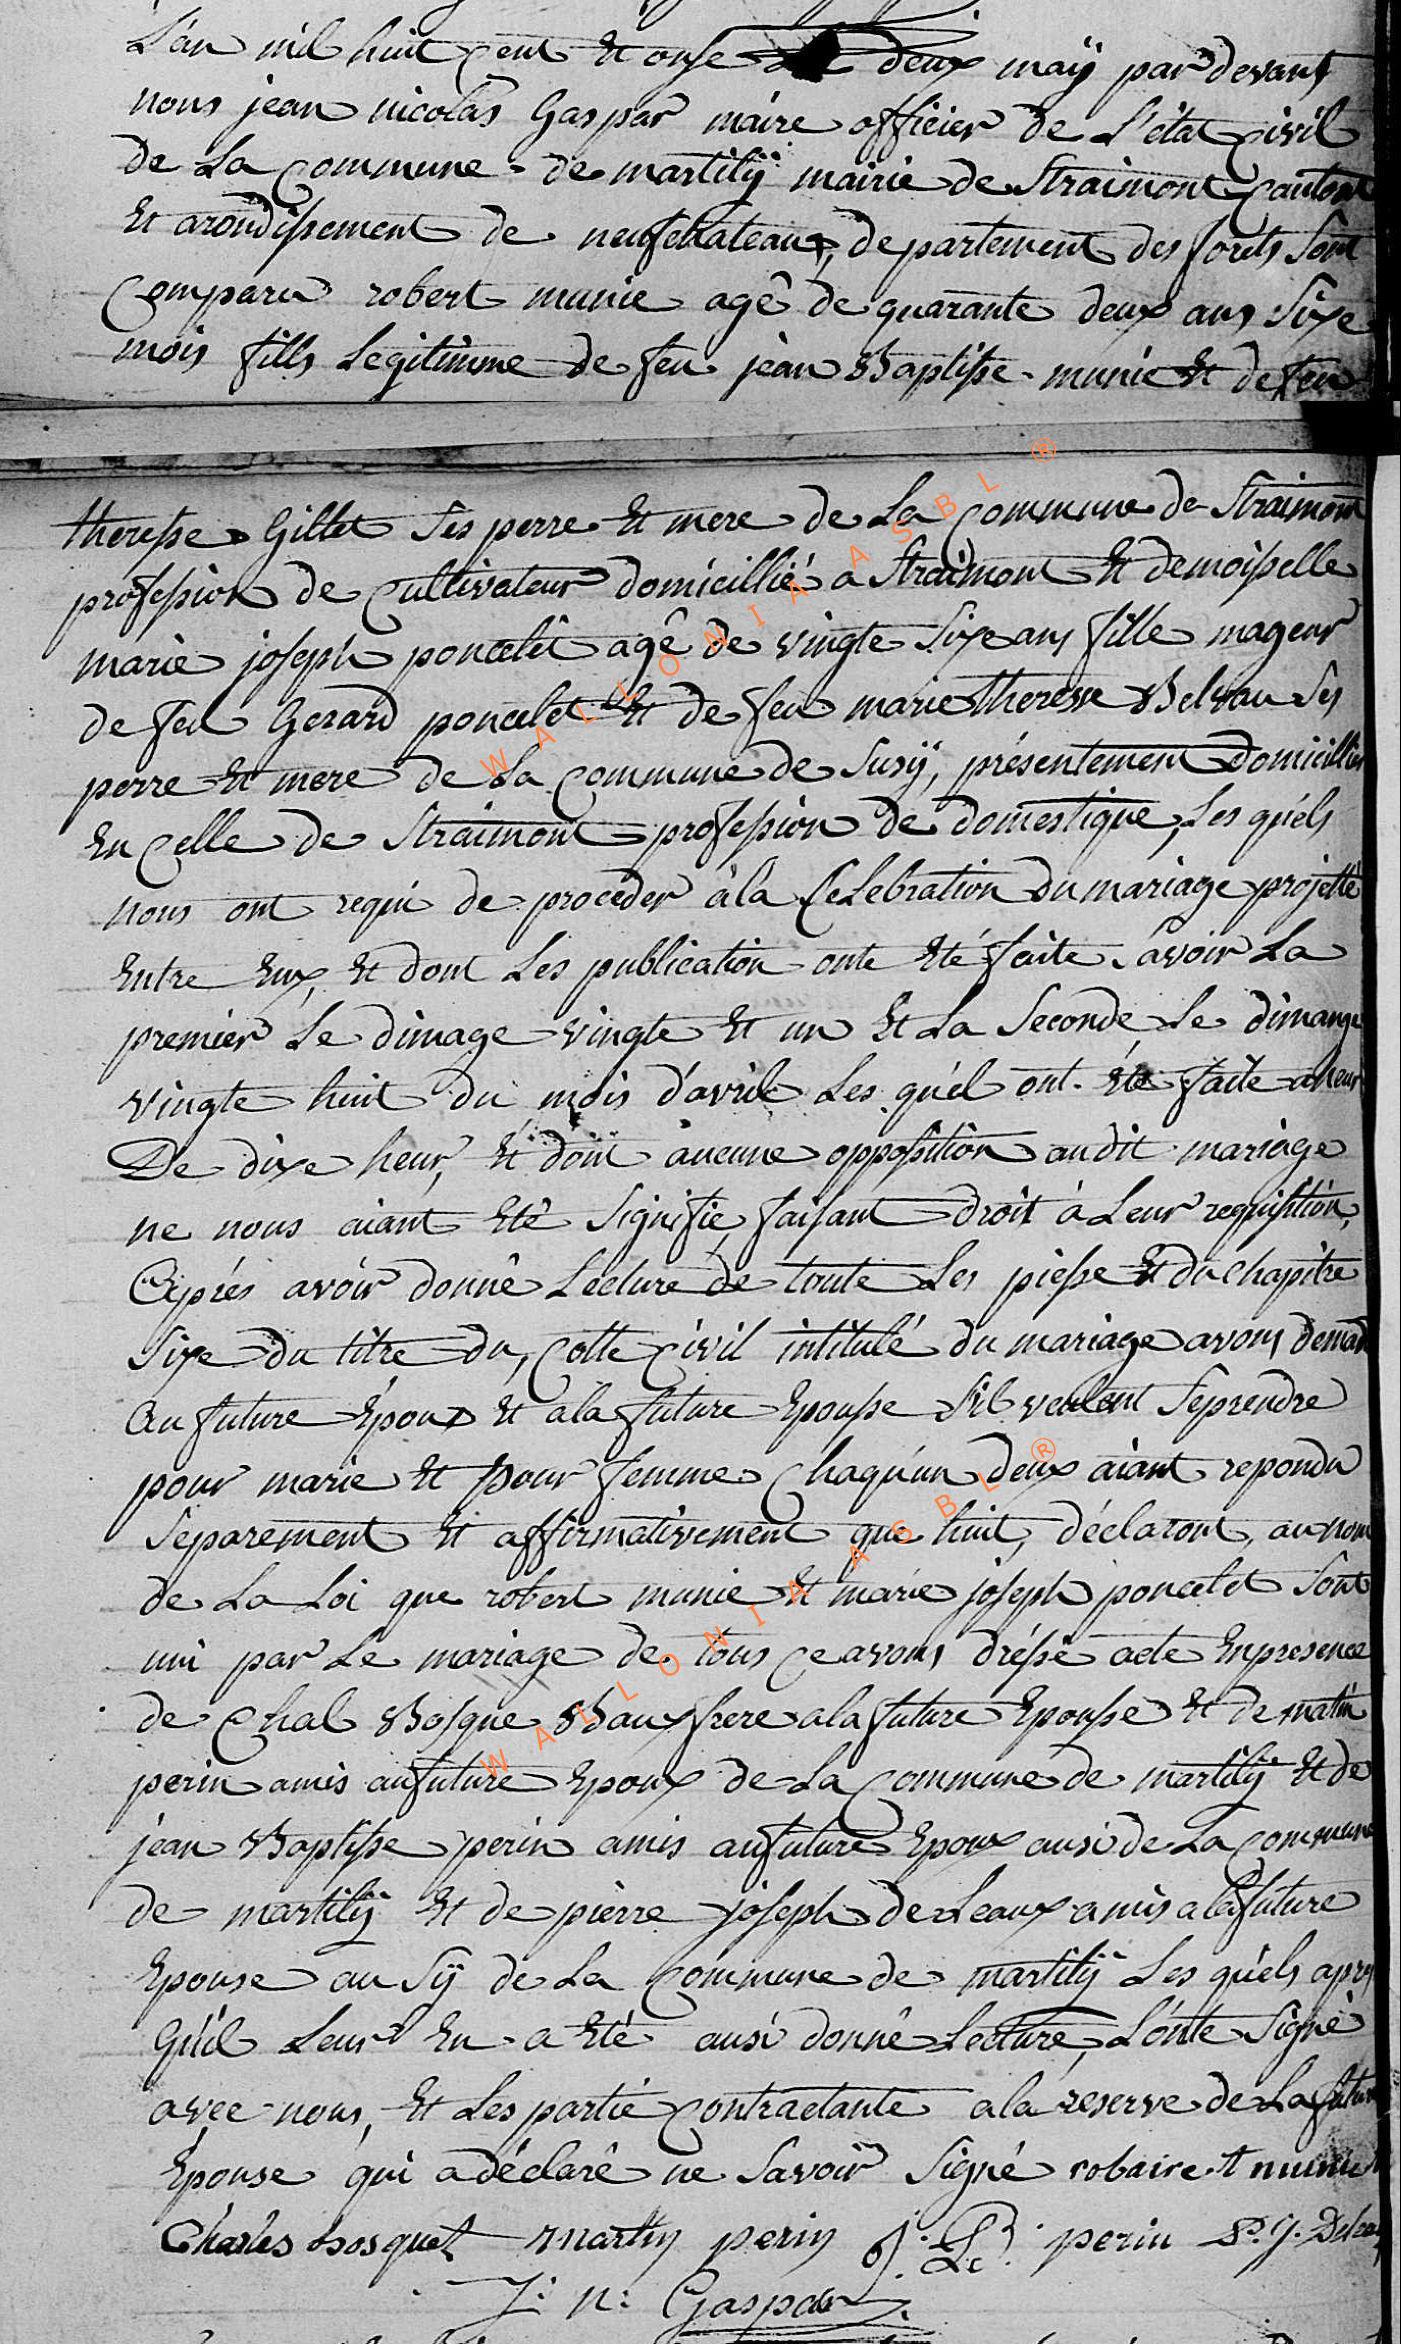 L'an mil huit cent Et onse Le deux maÿ par devant
nous jean nicolas Gaspar maire officier de L'état civil
de La commune de martilÿ mairie de Straimont canton
Et arondissement de neufchateau, departement des forets Sont
Comparu robert munie agê de quarante deux ans Sixe
mois fills Legitimme de feu jean Baptisse munie Et de feu
theresse Gillet Ses perre Et mere de La commune de Straimont
profession de cultivateur domicillié a Straimont Et demoisselle
marie joseph poncelet agê de vingte Sixe ans fille mageur
de feu Gerard poncelet Et de feu marie theresse Belvau Ses
perre Et mere de La commune de Susÿ, présentement domicillier
En celle de Straimont profession de domestique, Les quéls
nous ont requi de proceder à la Celebration du mariage projetté
Entre Eux, Et dont Les publication onte Eté faite Savoir La
premier Le dimage vingte Et un Et La Seconde Le dimange
vingte huit du mois d'avril Les quél ont Eté faite a heur
De dixe heur, Et dont aucune opposition audit mariage
ne nous aiant Eté Signifie, faisant droit à Leur requisition,
Après avoir donnê Lecture de toute Les piesse Et du chapitre
Sixe du titre du cotte civil intitulé du mariage avons demand
Au future Epoux Et a la future Epousse S'il veulent Se prendre
pour marie Et pour femme Chaqu'un deux aiant repondu
Separement Et affirmativement que huit, déclaront, au nom
de La Loi que robert munie Et marie joseph poncelet Sont
uni par Le mariage de tous ce avons dréssé acte En presence
de Chal Bosque Baux frere a la future Epousse Et de matin
perin amis au future Epoux de La commune de martilÿ Et de
jean Baptisse perin amis au future Epoux ausi de La commune
de martilÿ Et de pierre joseph de Leaux amis a la future
Epouse au Sÿ de La Commune de martilÿ Les quéls apres
Qu'il Leur En a Eté ausi donnê Lecture, L'onte Signé
avec nous, Et Les partie contractante a la reserve de La future
Épouse qui a déclarê ne Savoir Signé robaire t munie
Charles bosquet martin perin J: B: perin P. J. Deleau
J: n: Gaspar
WALLONIA ASBL ®
WALLONIA ASBL ®